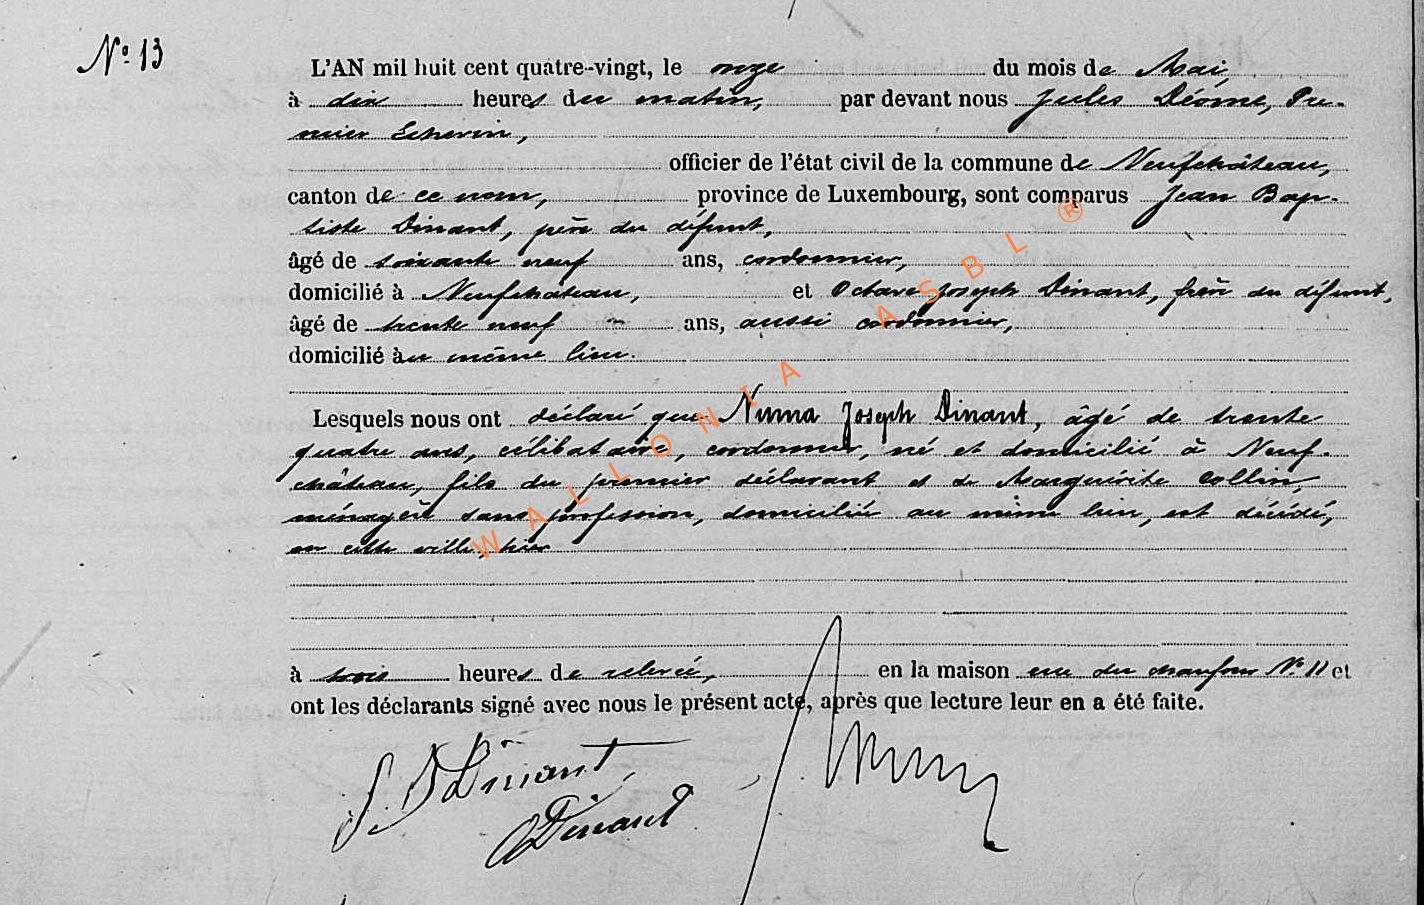 Nº 13
L'AN mil huit cent quatre-vingt, le onze du mois de Mai,
à dix heures du matin, par devant nous Jules Déome, Pre-
mier Echevin,
officier de l'état civil de la commune de Neufchâteau,
canton de ce nom, province de Luxembourg, sont comparus Jean Bap-
tiste Dinant, père du défunt,
âgé de soixante neuf ans, cordonnier,
domicilié à Neufchâteau, et Octave Joseph Dinant, frère du défunt,
âgé de trente neuf ans, aussi cordonnier,
domicilié au même lieu.
Lesquels nous ont déclaré que Numa Joseph Dinant, âgé de trente
quatre ans, célibataire, cordonnier, né et domicilié à Neuf-
château, fils du premier déclarant et de Marguérite Collin,
ménagère sans profession, domiciliée au même lieu, est décédé,
en cette ville, hier
à trois heures de relevée, en la maison rue du chaufour Nº 11 et
ont les déclarants signé avec nous le présent acte, après que lecture leur en a été faite.
J. B Dinant
O Dinant
WALLONIA ASBL ®